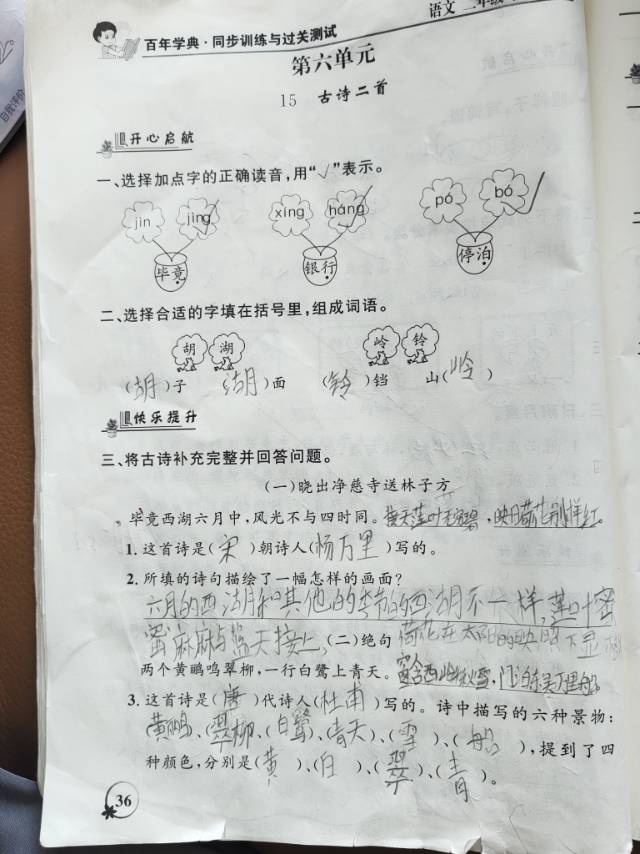 语文 二年级
百年学典·同步训练与过关测试
第六单元
15 古诗二首
开心启航
一、选择加点字的正确读音,用“√”表示。
jìn jìng xíng háng pó bó
毕竟 银行 停泊
二、选择合适的字填在括号里,组成词语。
胡 湖 岭 铃
(胡)子 (湖)面 (铃)铛 山(岭)
快乐提升
三、将古诗补充完整并回答问题。
(一)晓出净慈寺送林子方
毕竟西湖六月中,风光不与四时同。接天莲叶无穷碧,映日荷花别样红。
1. 这首诗是(宋)朝诗人(杨万里)写的。
2. 所填的诗句描绘了一幅怎样的画面?
六月的西湖和其他的季节的西湖不一样,莲叶密
密麻麻与蓝天接上,荷花在太阳的映照下显
(二)绝句
两个黄鹂鸣翠柳,一行白鹭上青天。窗含西岭千秋雪,门泊东吴万里船。
3. 这首诗是(唐)代诗人(杜甫)写的。诗中描写的六种景物:
黄鹂、(翠柳、(白鹭)、(青天)、(雪)、(船),提到了四
种颜色,分别是(黄)、(白)、(翠)、(青)。
36